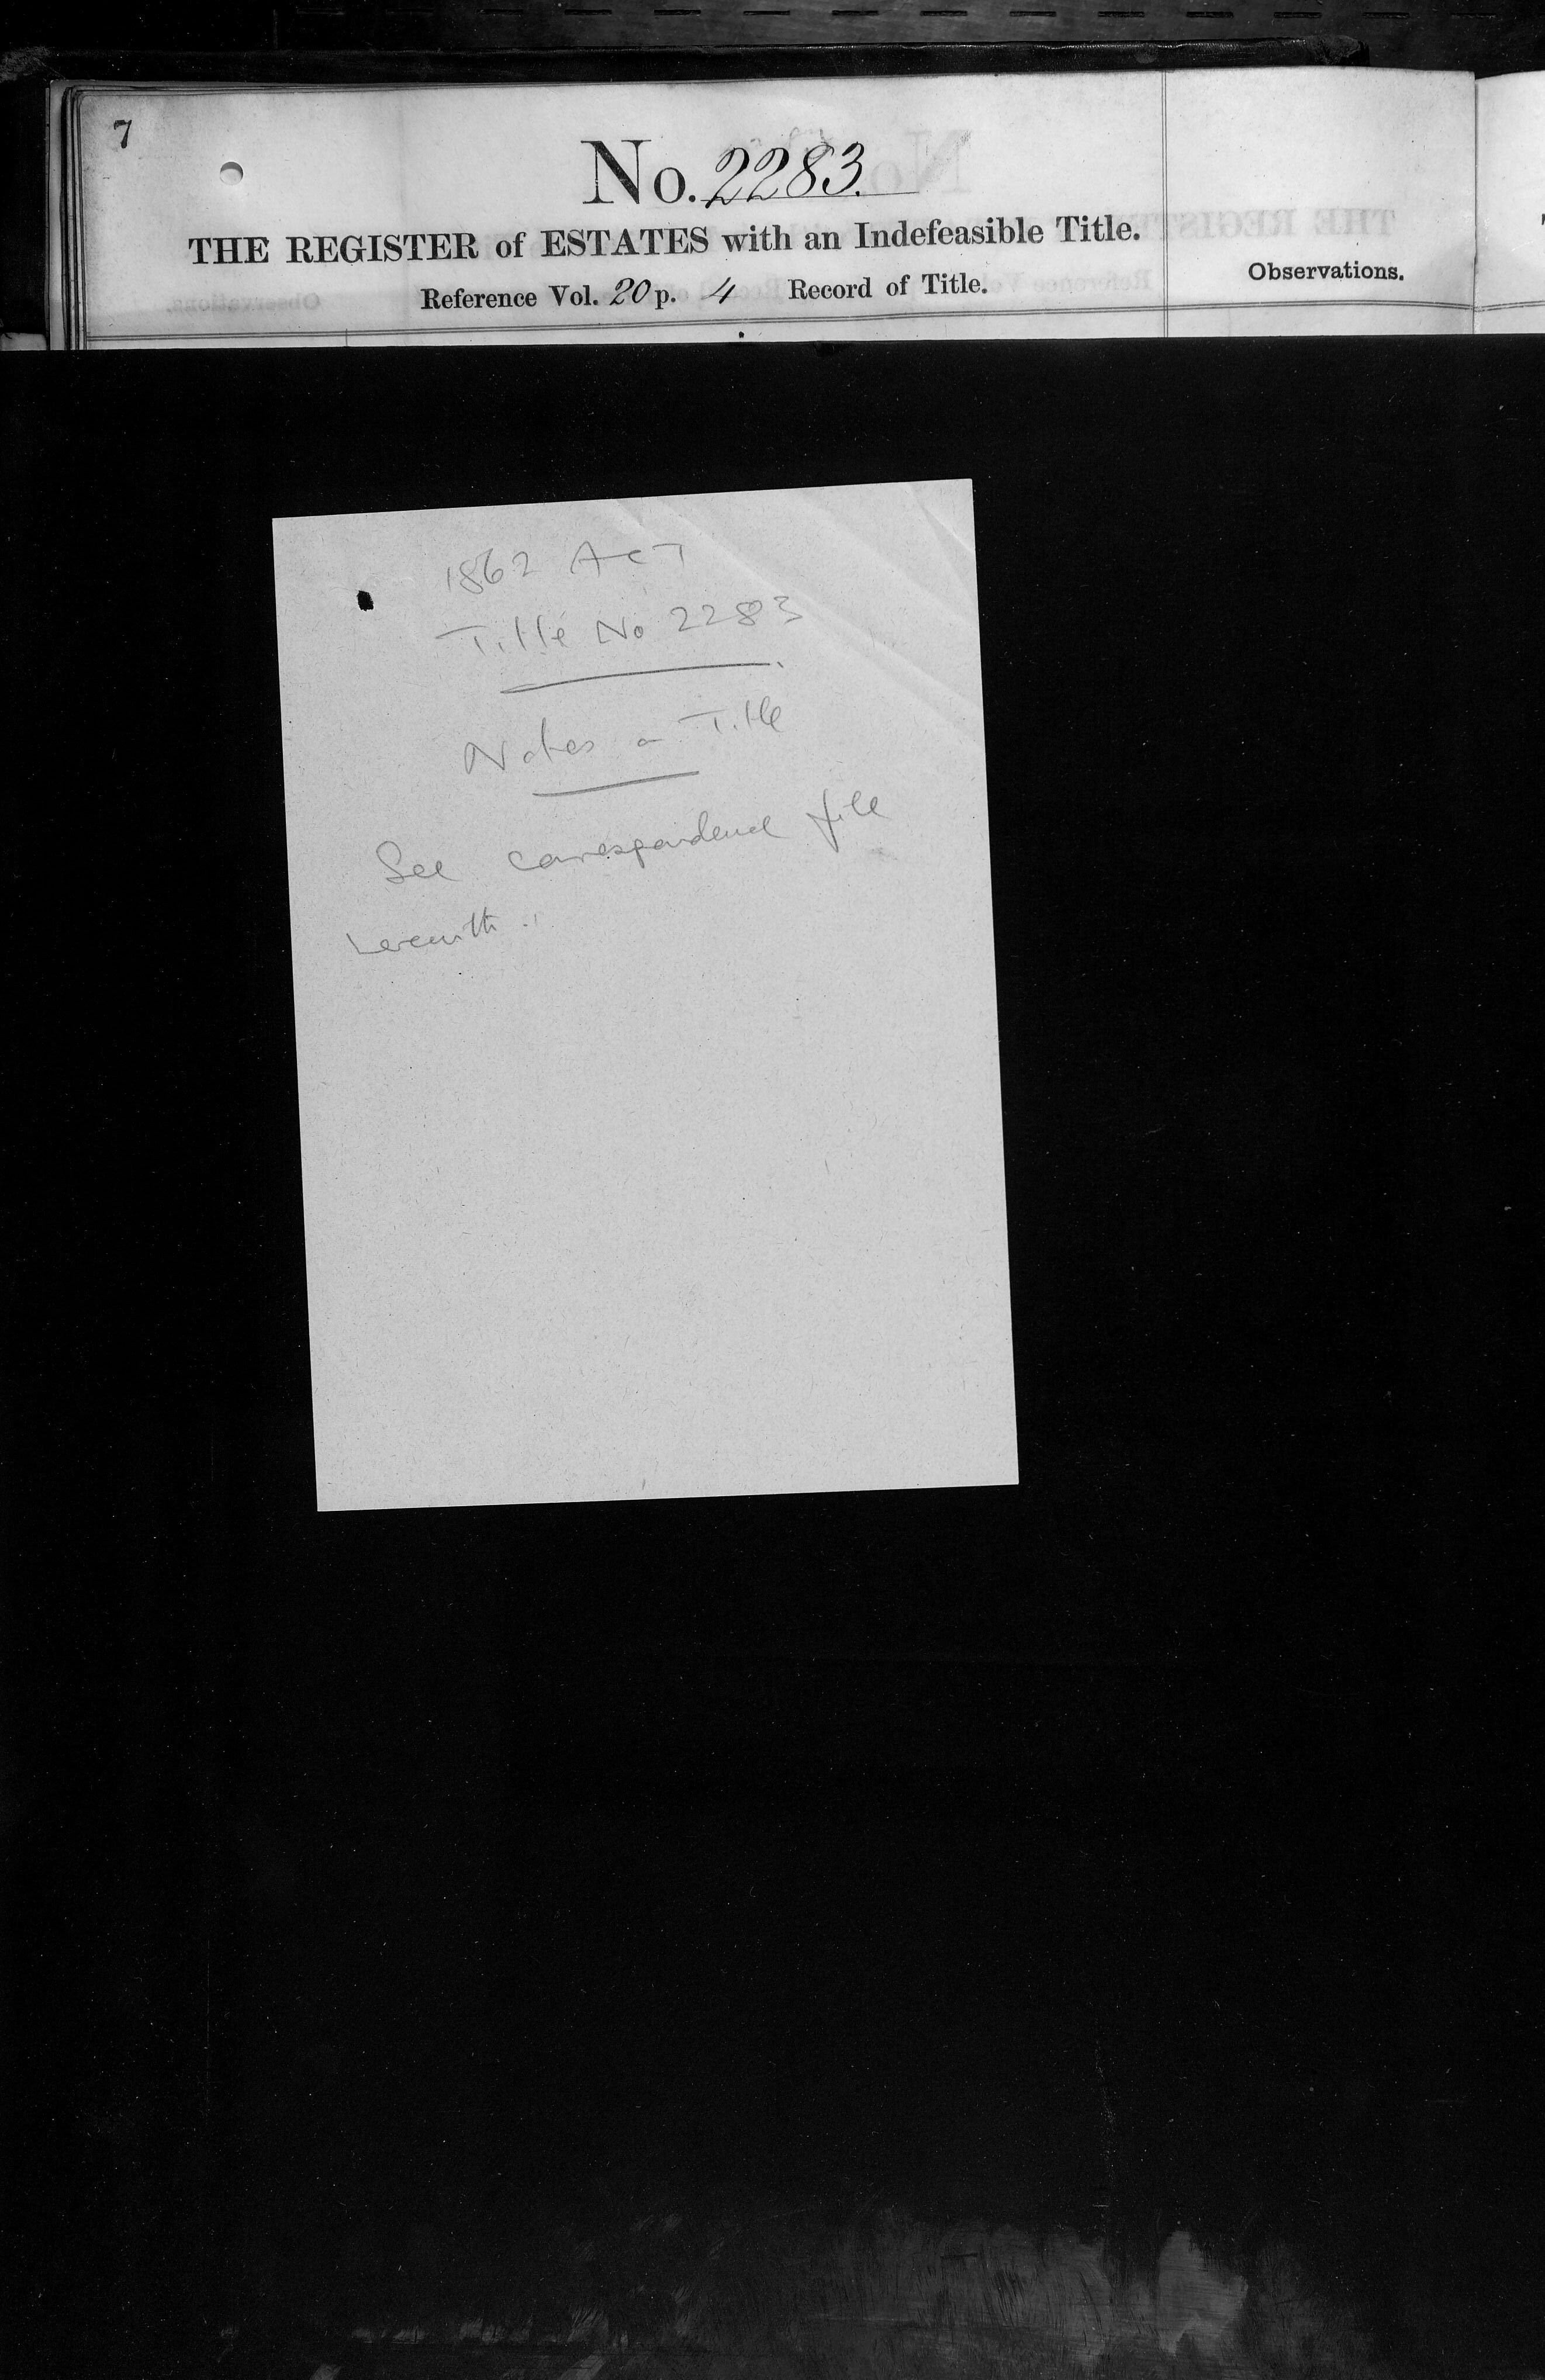 7
No. 2283.
THE REGISTER of ESTATES with an Indefeasible Title.
Reference Vol. 20 p. 4 Record of Title.
Observations.
1862 Act
Title No 2283
Notes on Title
See correspondence file
herewith.